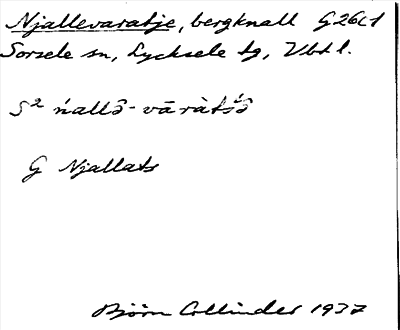 Njallevaratje, bergknall G 26c1
Sorsele sn, Lycksele tg, Vbtl.
S² ńallɔ̂-vāràtśɔ̂
G Njallats
Björn Collinder 1937